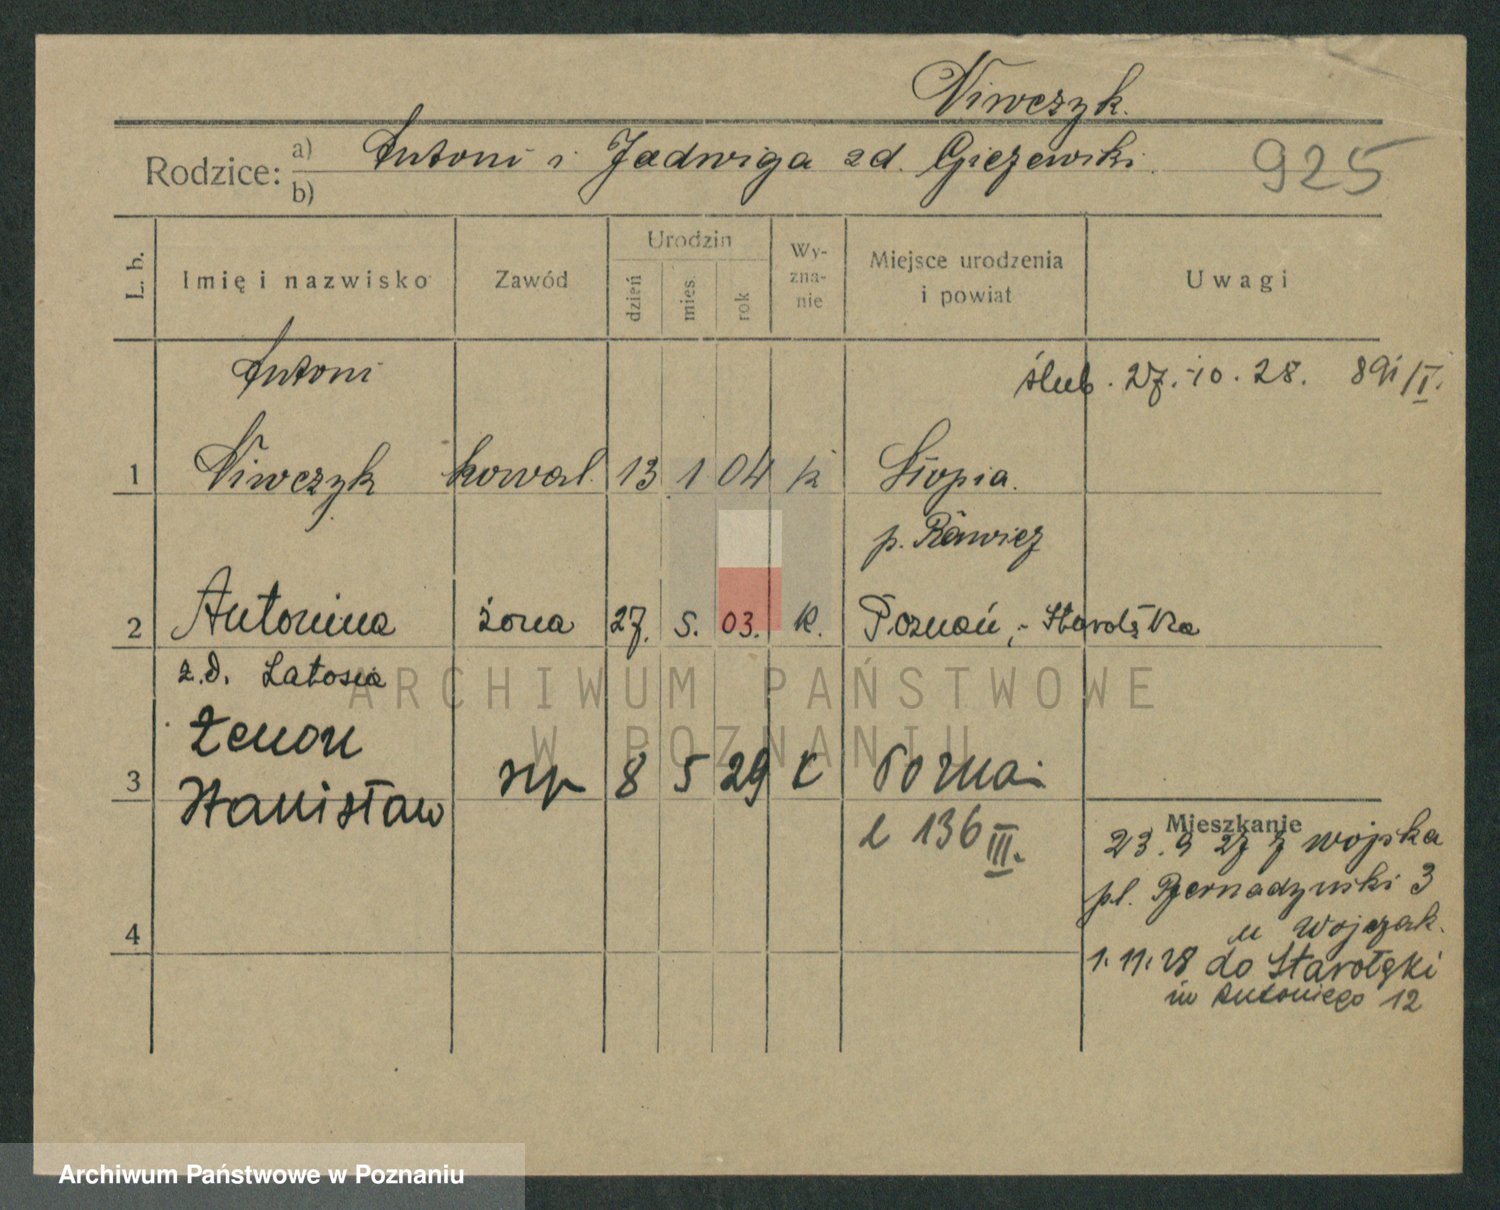 Niwczyk.
Rodzice: a) b) Antoni i Jadwiga zd. Giezewski.
925
L. b. Imię i nazwisko Zawód Urodzin dzień mies. rok Wy-zna-nie Miejsce urodzenia i powiat Uwagi
Antoni
ślub. 27.-10.28. 891/I.
1 Niwczyk kowal. 13 1 04 k Słopia.
p. Rawicz
2 Antonina żona 27. 5. 03. k. Poznań,- Starołęka
z.d. Latosia
Zenon
3 Stanisław syn 8 5 29 k Pozna
l 136 III.
Mieszkanie
23.9 27 z wojska
pl. Bernadyński 3
u Wojczak.
4
1.11.28 do Starołęki
Antoniego 12
ARCHIWUM PAŃSTWOWE
W POZNANIU
Archiwum Państwowe w Poznaniu